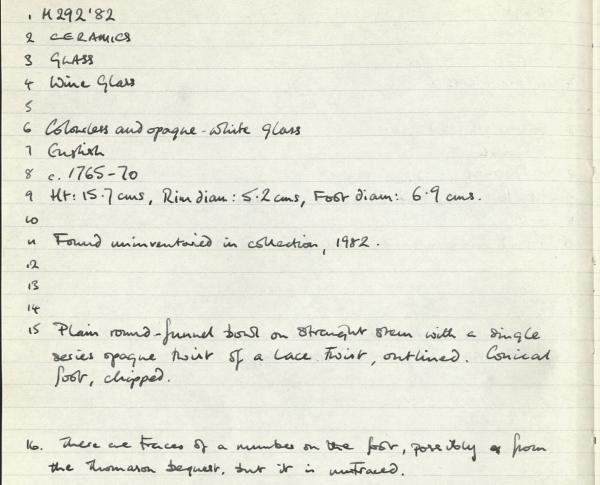 1 H292'82
2 CERAMICS
3 GLASS
4 Wine Glass
5
6 Colourless and opaque-white glass
7 English
8 c. 1765-70
9 Ht: 15.7 cms, Rim diam: 5.2 cms, Foot diam: 6.9 cms.
10
11 Found uninventoried in collection, 1982.
12
13
14
15 Plain round-funnel bowl on straight stem with a single
series opaque twist of a lace twist, outlined. Conical
foot, chipped.
16. There are traces of a number on the foot, possibly from
the Thomason bequest, but it is untraced.